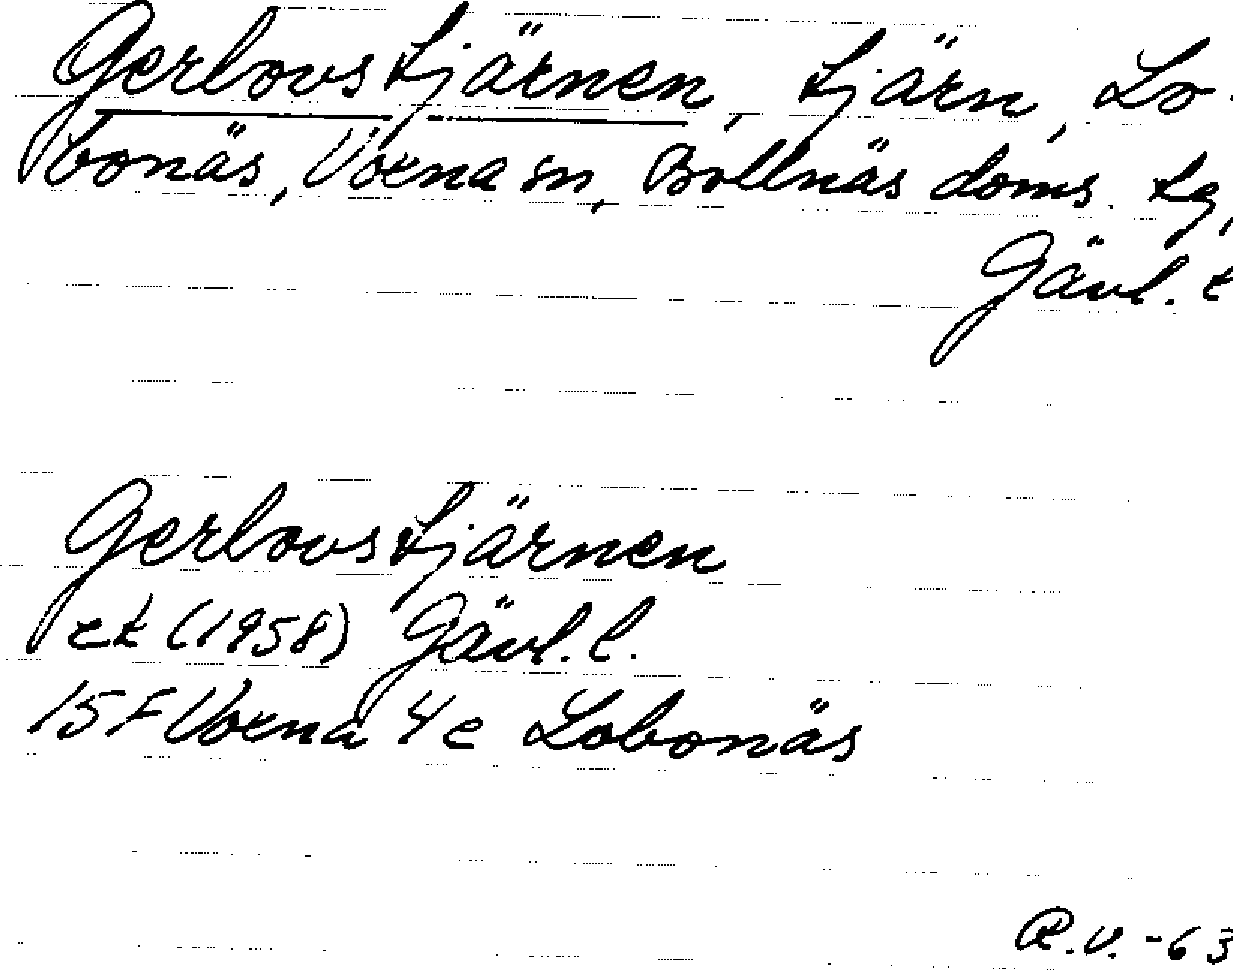 Gerlovstjärnen, tjärn, Lo-
bonäs, Voxna sn, Bollnäs doms. tg,
Gävl. l
Gerlovstjärnen
ek (1958) Gävl. l.
15F Voxna 4e Lobonäs
R.V. -63